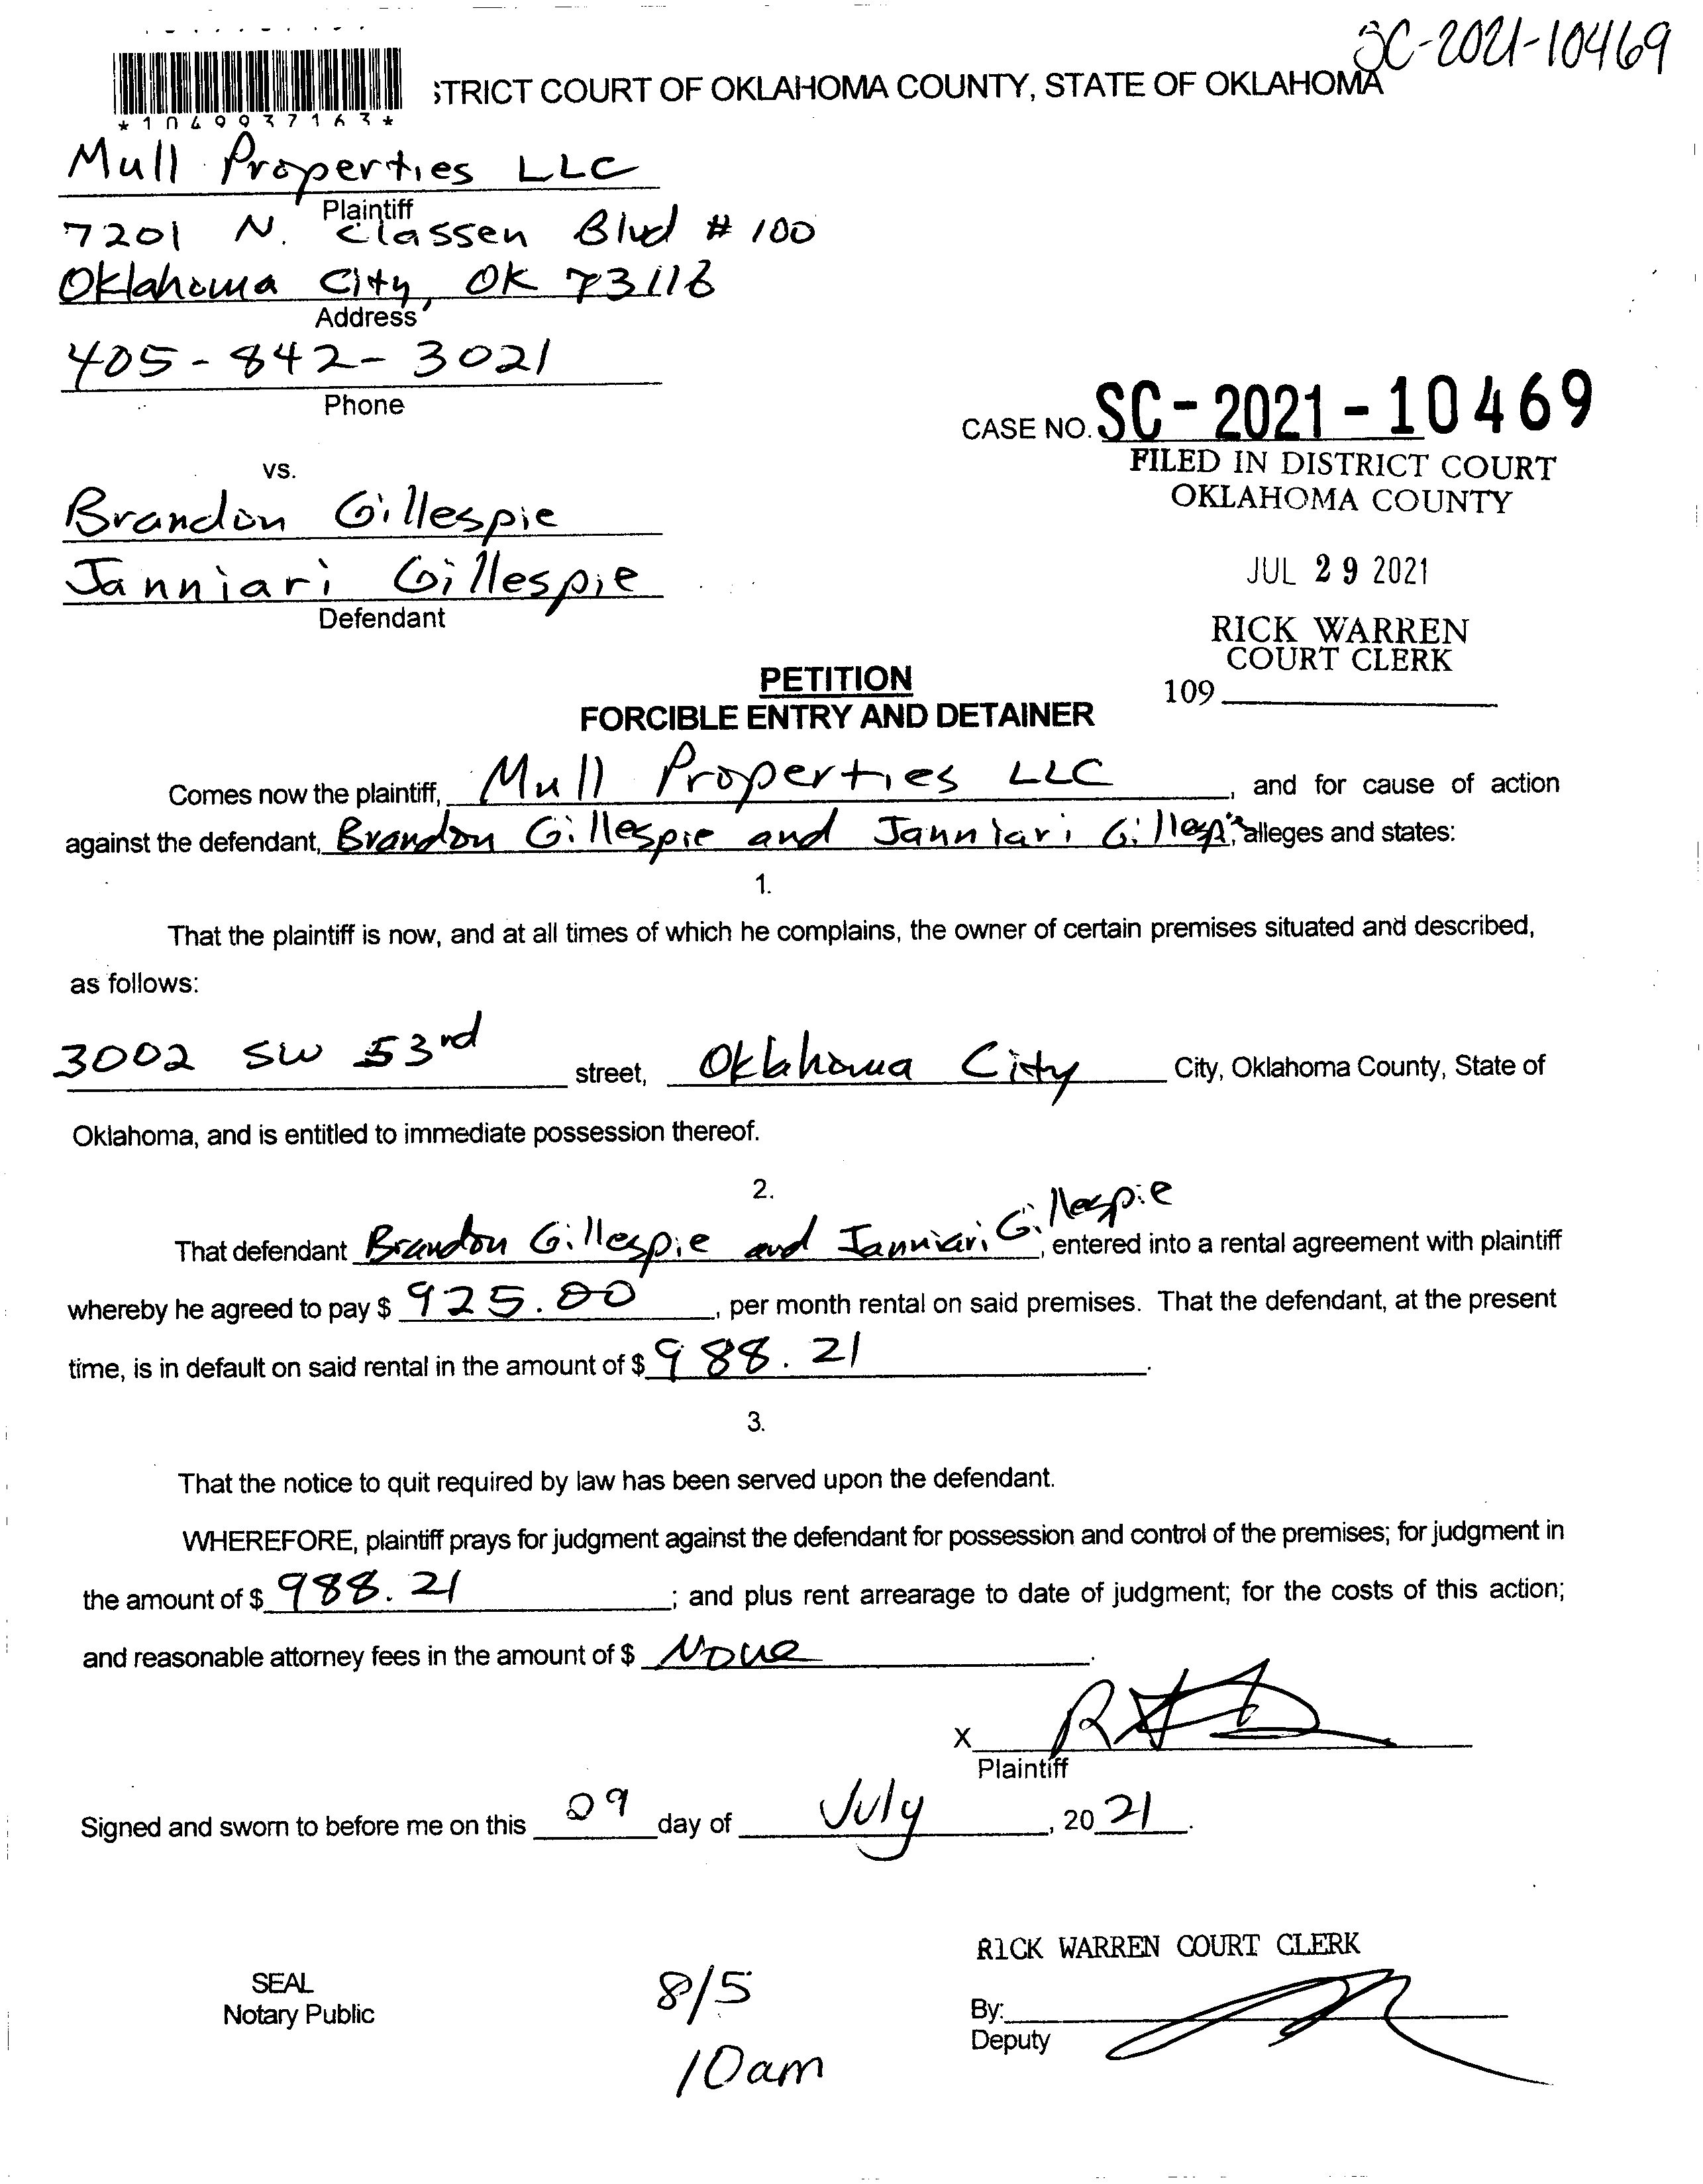 SC-2021-10469
STRICT COURT OF OKLAHOMA COUNTY, STATE OF OKLAHOMA
*1049937163*
Mull Properties LLC
Plaintiff
7201 N. Classen Blvd # 100
Oklahoma City, OK 73116
Address
405-842-3021
Phone
CASE NO. SC-2021-10469
FILED IN DISTRICT COURT
OKLAHOMA COUNTY
vs.
Brandon Gillespie
JUL 29 2021
Janniari Gillespie
Defendant
RICK WARREN
COURT CLERK
109
PETITION
FORCIBLE ENTRY AND DETAINER
Comes now the plaintiff, Mull Properties LLC, and for cause of action
against the defendant, Brandon Gillespie and Janniari Gillespie, alleges and states:
1.
That the plaintiff is now, and at all times of which he complains, the owner of certain premises situated and described,
as follows:
3002 SW 53rd street, Oklahoma City City, Oklahoma County, State of
Oklahoma, and is entitled to immediate possession thereof.
2.
That defendant Brandon Gillespie and Janniari Gillespie, entered into a rental agreement with plaintiff
whereby he agreed to pay $ 925.00, per month rental on said premises. That the defendant, at the present
time, is in default on said rental in the amount of $ 988.21.
3.
That the notice to quit required by law has been served upon the defendant.
WHEREFORE, plaintiff prays for judgment against the defendant for possession and control of the premises; for judgment in
the amount of $ 988.21; and plus rent arrearage to date of judgment; for the costs of this action;
and reasonable attorney fees in the amount of $ None.
X
Plaintiff
Signed and sworn to before me on this 09 day of July, 2021.
RICK WARREN COURT CLERK
SEAL
Notary Public
8/5
10am
By:
Deputy